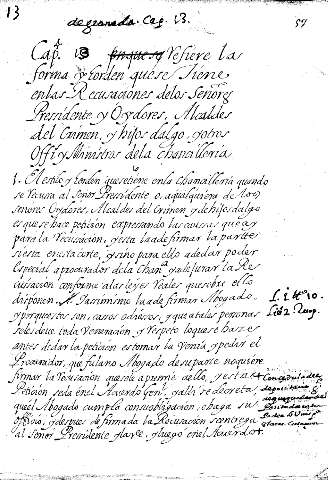 13
de granada Cap. 13.
57
Cap. 13 en que se Refiere la
forma y horden que se tiene
en las Recusaciones de los Señores
Pressidente y Oydores, Alcaldes
del Crimen, y hijos dalgo, y otros
Offi y Ministros de la chancilleria
1. El estilo y horden que se tiene en la Chancilleria quando
se recusa al Señor Presidente o a qualquiera de los
señores Oydores, Alcaldes del Crimen, y de hijos dalgo
es que se hace petición expresando las causas que ay
para la Recusación, y esta la a de firmar la parte
si esta en la corte, y sino para ello a de dar poder
Especial a procurador de la Chan y a de jurar la Re
cusacion conforme a las leyes Reales que sobre ello
disponen. Y assimismo la a de firmar Abogado
y porque estos son casos odiosos, y que a tales personas
se les deve toda Veneracion y Respeto lo que se hace es
antes de dar la petición es tomar la Venia y pedir el
Procurador, que fulano Abogado de su parte no quiere
firmar la Recusacion que se le apremie a ello, y esta
Petición se da en el Acuerdo gen y alli se decreta,
que el Abogado cumpla con su obligacion, e haga su
officio, y despues de firmada la Recusacion se entrega
al Señor Presidente y luego en el Acuerdo
L. 1. tto 10.
Lib 2 Recop.